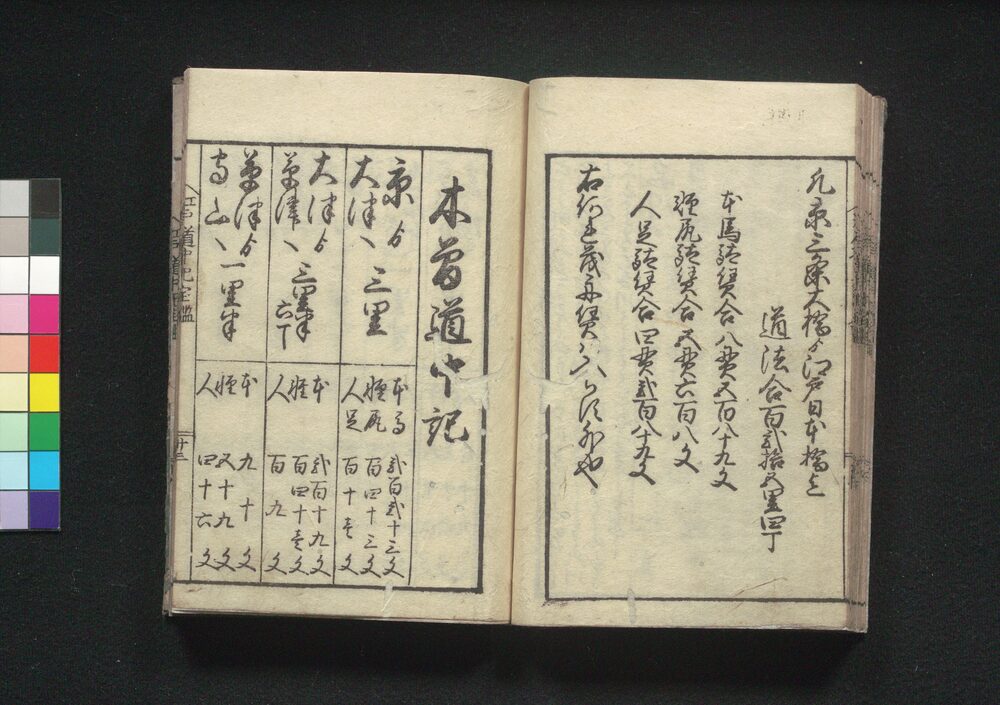 凡京三條大橋ゟ江戸日本橋迄
道法合百弐拾五里四丁
本馬駄賃合八貫五百八十九文
軽尻駄賃合五貫六百八文
人足駄賃合四貫弐百八十九文
木曽道中記
京ゟ
大津へ 三里
本馬 弐百弐十三文
軽尻 百四十三文
人足 百十壱文
大津ゟ
草津へ 三里半六丁
本 弐百十九文
軽 百四十壱文
人 百九文
草津ゟ
守山へ 一里半
本 九十文
軽 五十九文
人 四十六文
江戸道中記宝鑑
廿三